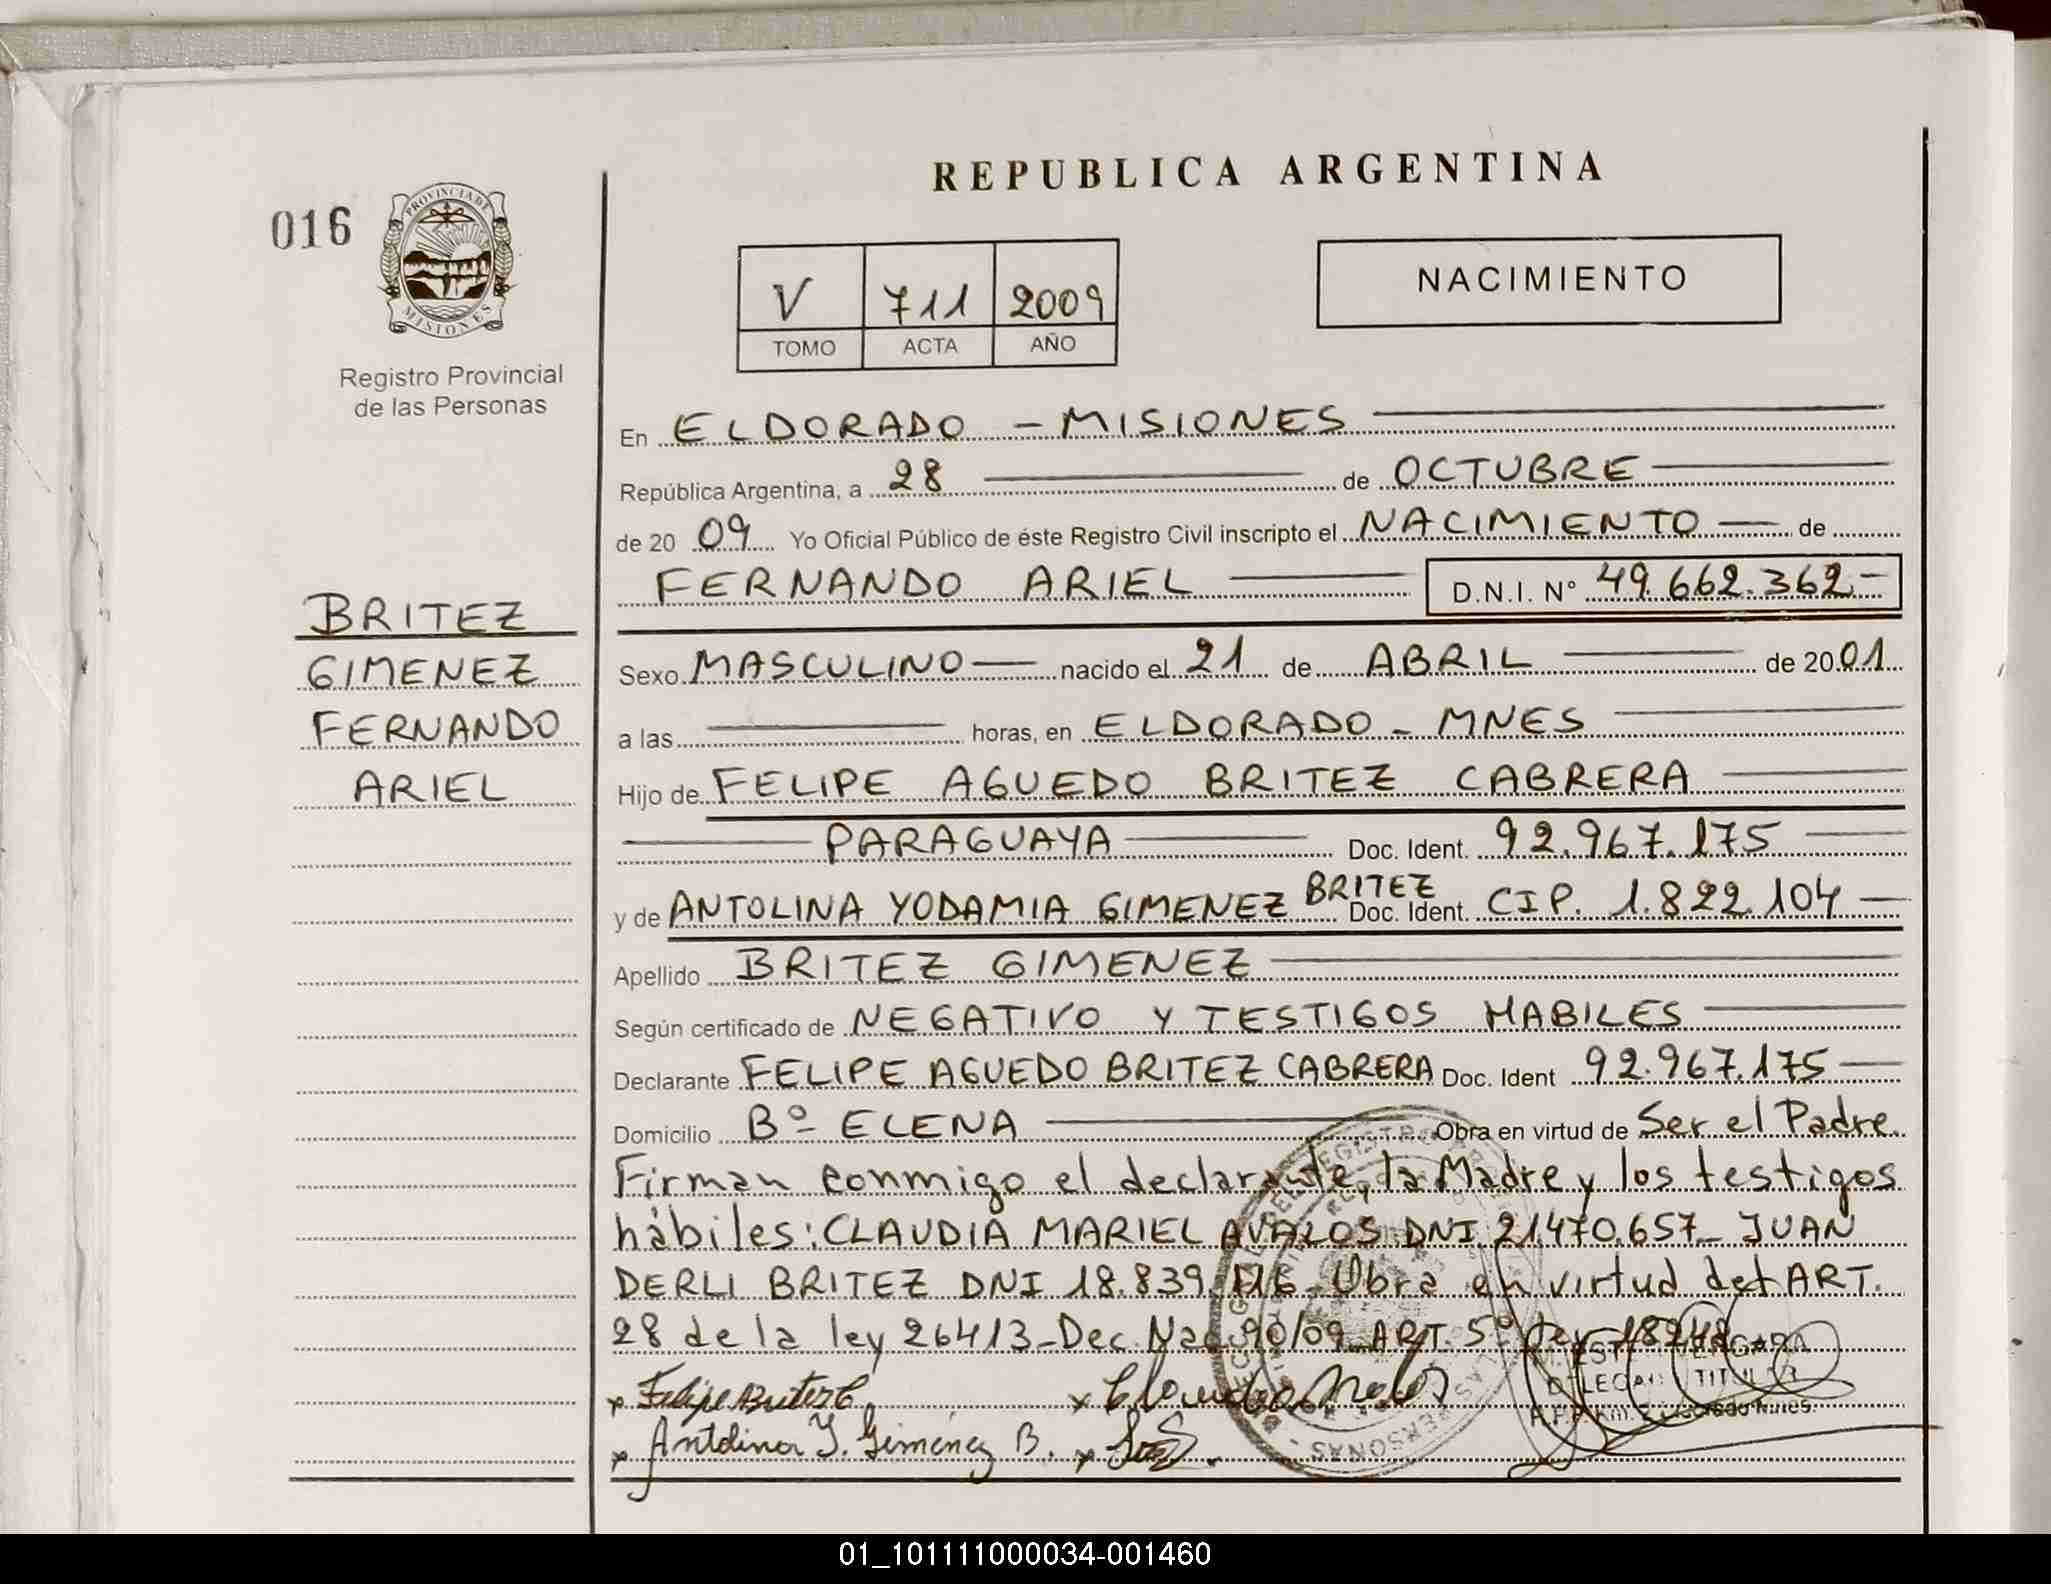 REPUBLICA ARGENTINA
016
PROVINCIA DE
MISIONES
Registro Provincial
de las Personas
V 711 2009
TOMO ACTA AÑO
NACIMIENTO
En ELDORADO - MISIONES
República Argentina, a 28 de OCTUBRE
de 20 09 Yo Oficial Público de éste Registro Civil inscripto el NACIMIENTO de
FERNANDO ARIEL D.N.I. Nº 49.662.362.-
BRITEZ
GIMENEZ
FERNANDO
ARIEL
Sexo MASCULINO nacido el 21 de ABRIL de 20 01
a las horas, en ELDORADO - MNES
Hijo de FELIPE AGUEDO BRITEZ CABRERA
PARAGUAYA Doc. Ident. 92.967.175
y de ANTOLINA YODAMIA GIMENEZ BRITEZ Doc. Ident. CIP. 1.822.104
Apellido BRITEZ GIMENEZ
Según certificado de NEGATIVO Y TESTIGOS HABILES
Declarante FELIPE AGUEDO BRITEZ CABRERA Doc. Ident 92.967.175
Domicilio Bº ELENA Obra en virtud de Ser el Padre.
Firman conmigo el declarante, la Madre y los testigos
hábiles: CLAUDIA MARIEL AVALOS DNI 21.470.657_ JUAN
DERLI BRITEZ DNI 18.839. Obra en virtud del ART.
28 de la ley 26413_Dec. Nac. 90/09_ART. 5º ley
x Felipe Britez C x Claudia Avalos
x Antolina Y. Gimenez B. x
TITULAR
PERSONAS
01_101111000034-001460